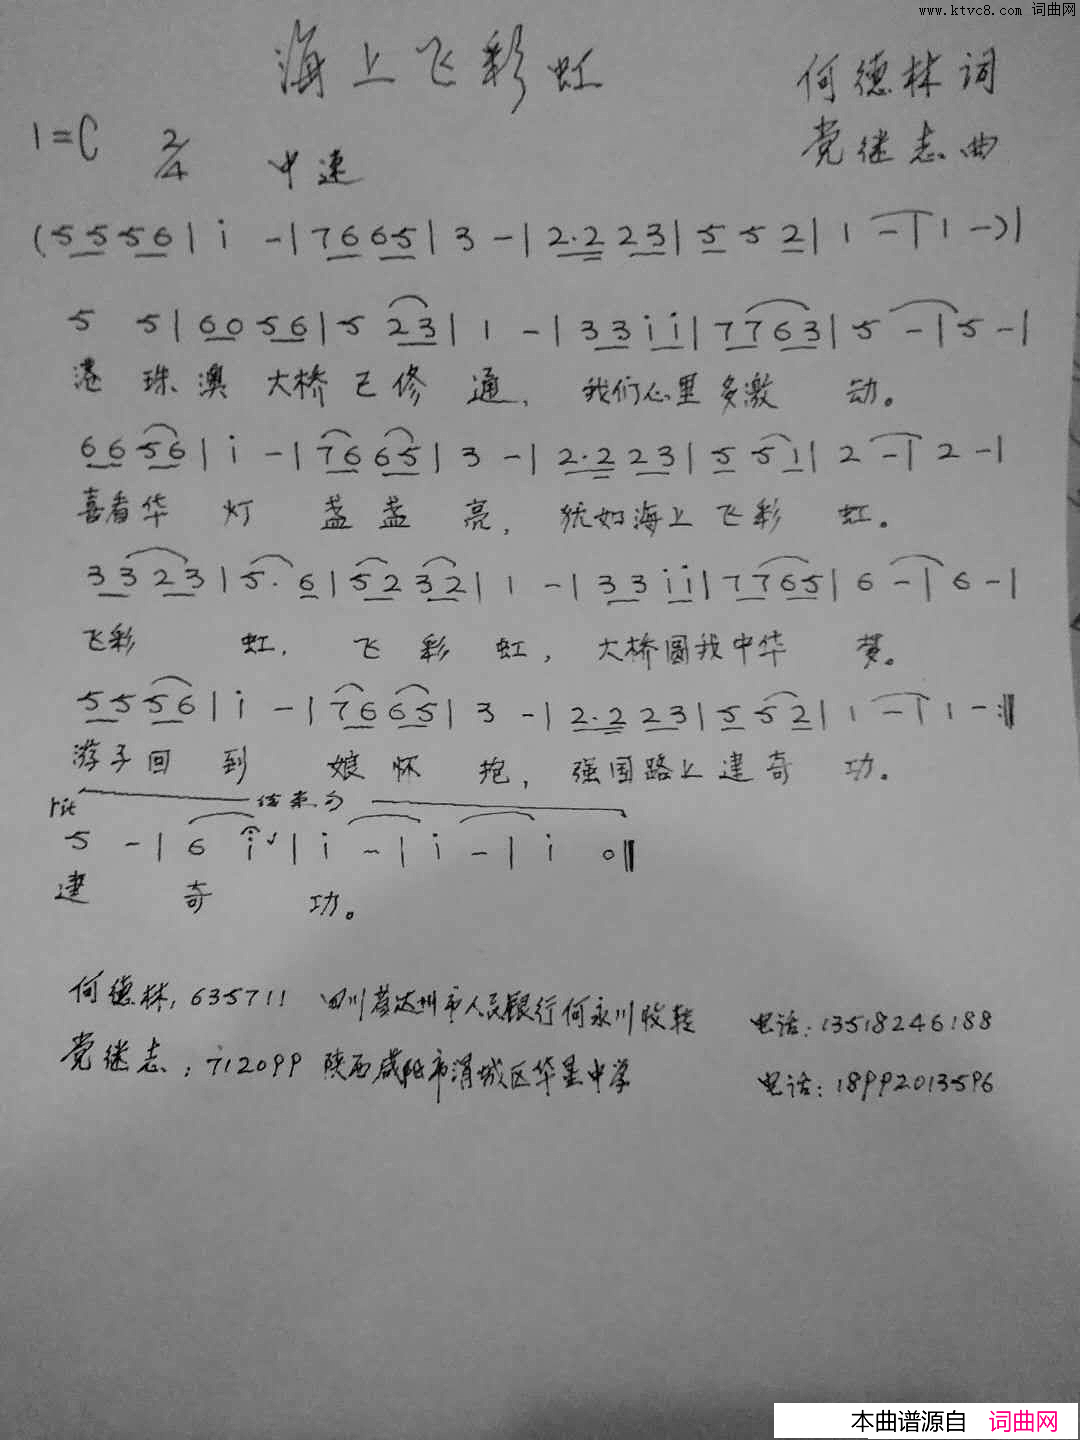 www.ktvc8.com 词曲网
海上飞彩虹
何德林词
1=C 2/4 中速
党继志曲
(5 5 5 6 | i - | 7 6 6 5 | 3 - | 2. 2 2 3 | 5 5 2 | 1 - | 1 -) |
5 5 | 6 0 5 6 | 5 2 3 | 1 - | 3 3 i i | 7 7 6 3 | 5 - | 5 - |
港珠澳大桥已修通, 我们心里多激动。
6 6 5 6 | i - | 7 6 6 5 | 3 - | 2. 2 2 3 | 5 5 1 | 2 - | 2 - |
喜看华灯盏盏亮, 犹如海上飞彩虹。
3 3 2 3 | 5. 6 | 5 2 3 2 | 1 - | 3 3 i i | 7 7 6 5 | 6 - | 6 - |
飞彩虹, 飞彩虹, 大桥圆我中华梦。
5 5 5 6 | i - | 7 6 6 5 | 3 - | 2. 2 2 3 | 5 5 2 | 1 - | 1 - :||
游子回到娘怀抱, 强国路上建奇功。
rit 结束句
5 - | 6 i | i - | i - | i 0 ||
建奇功。
何德林, 635711 四川省达州市人民银行何永川收转 电话: 13518246188
党继志: 712099 陕西咸阳市渭城区华星中学 电话: 18992013596
本曲谱源自 词曲网